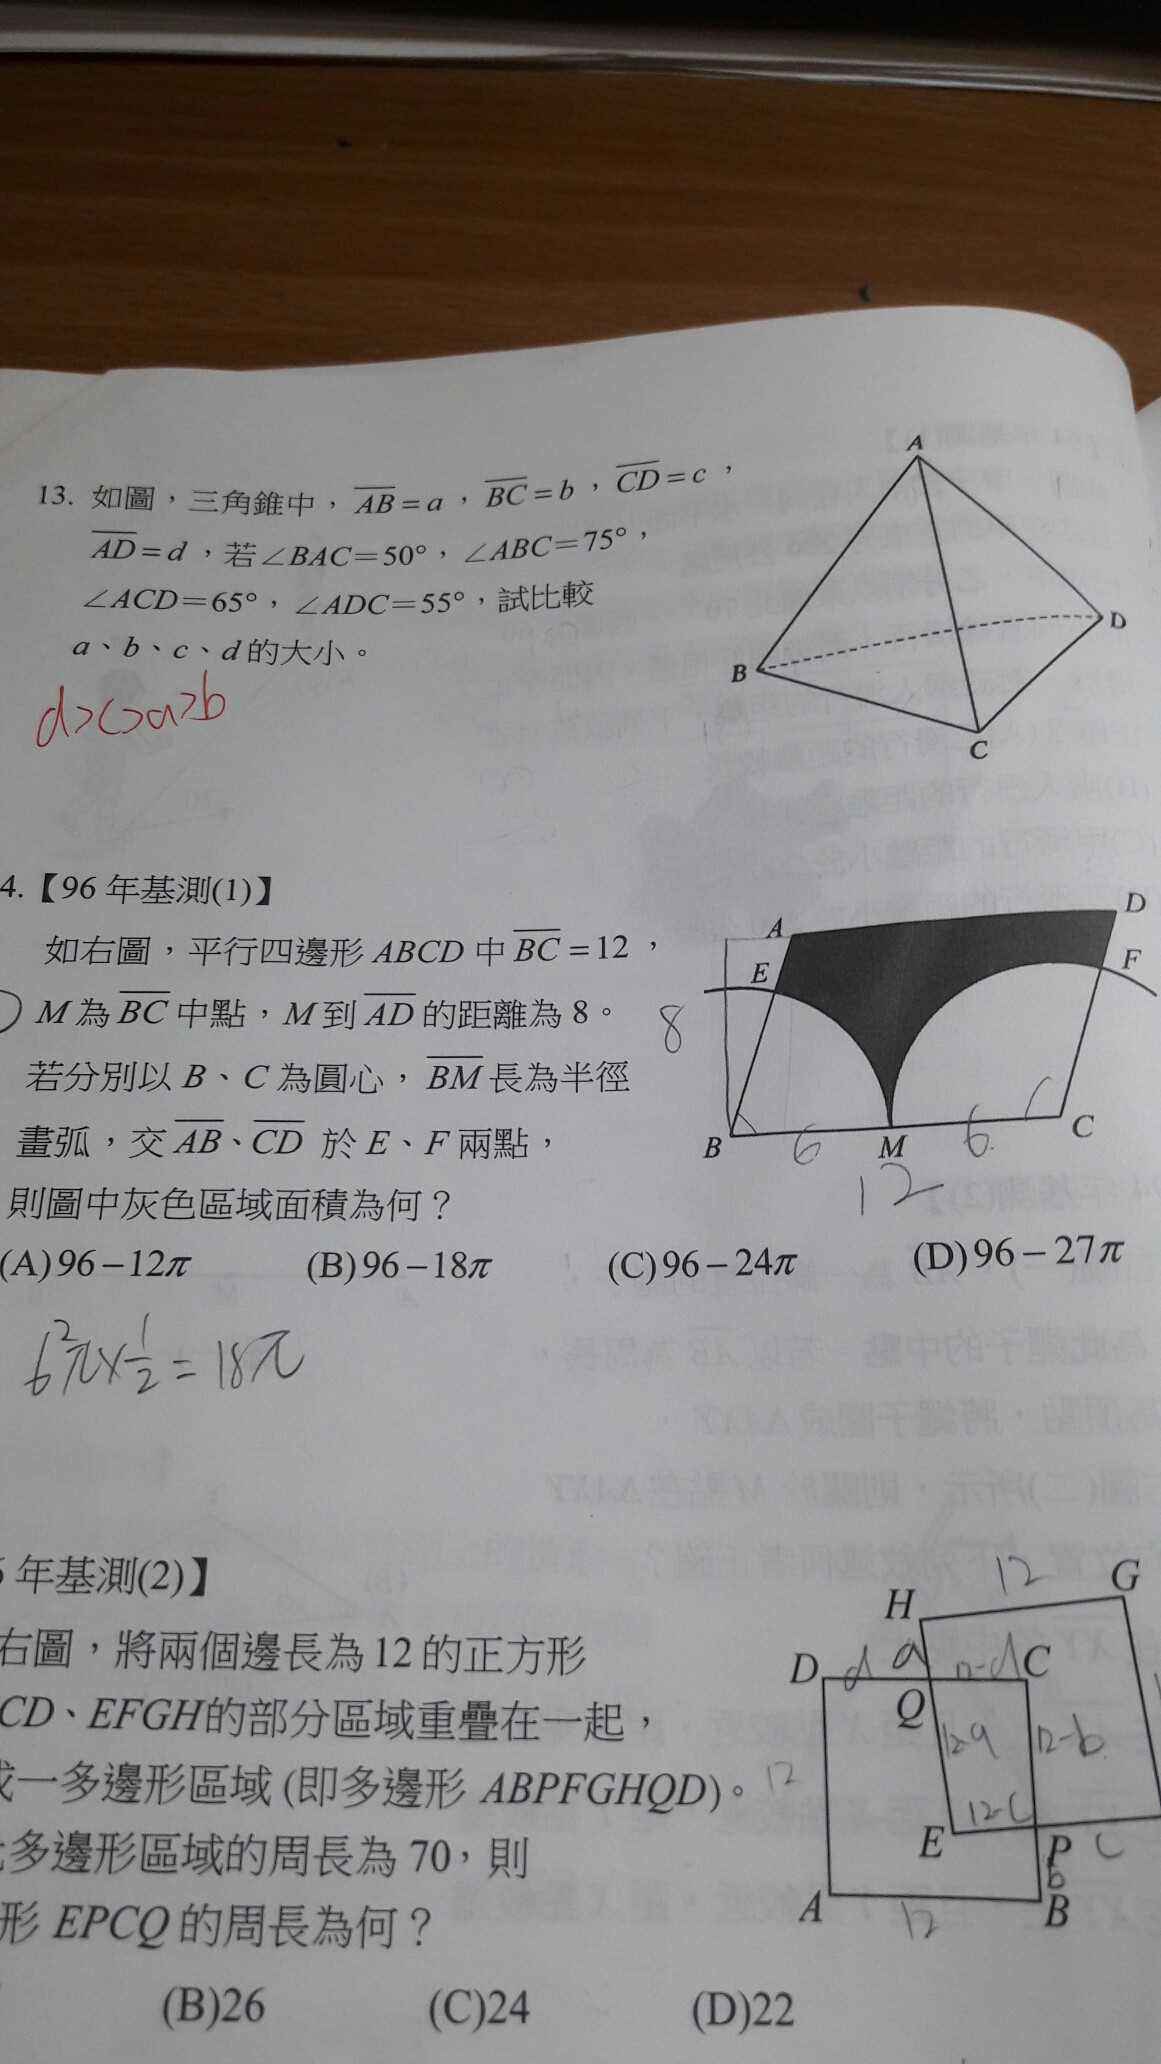 13. 如圖，三角錐中，AB=a，BC=b，CD=c，
AD=d，若∠BAC=50°，∠ABC=75°，
∠ACD=65°，∠ADC=55°，試比較
a、b、c、d的大小。
d>c>a>b
A
B
C
D
4.【96年基測(1)】
如右圖，平行四邊形ABCD中BC=12，
M為BC中點，M到AD的距離為8。
若分別以B、C為圓心，BM長為半徑
畫弧，交AB、CD於E、F兩點，
則圖中灰色區域面積為何？
A
D
E
F
8
B
6
M
6
C
12
(A)96−12π (B)96−18π (C)96−24π (D)96−27π
6²π×1/2=18π
年基測(2)】
右圖，將兩個邊長為12的正方形
CD、EFGH的部分區域重疊在一起，
一多邊形區域(即多邊形ABPFGHQD)。
多邊形區域的周長為70，則
形EPCQ的周長為何？
12
H
G
D
d
a
12-d
C
Q
12-a
12-b
12
12-c
E
P
c
b
A
12
B
(B)26 (C)24 (D)22